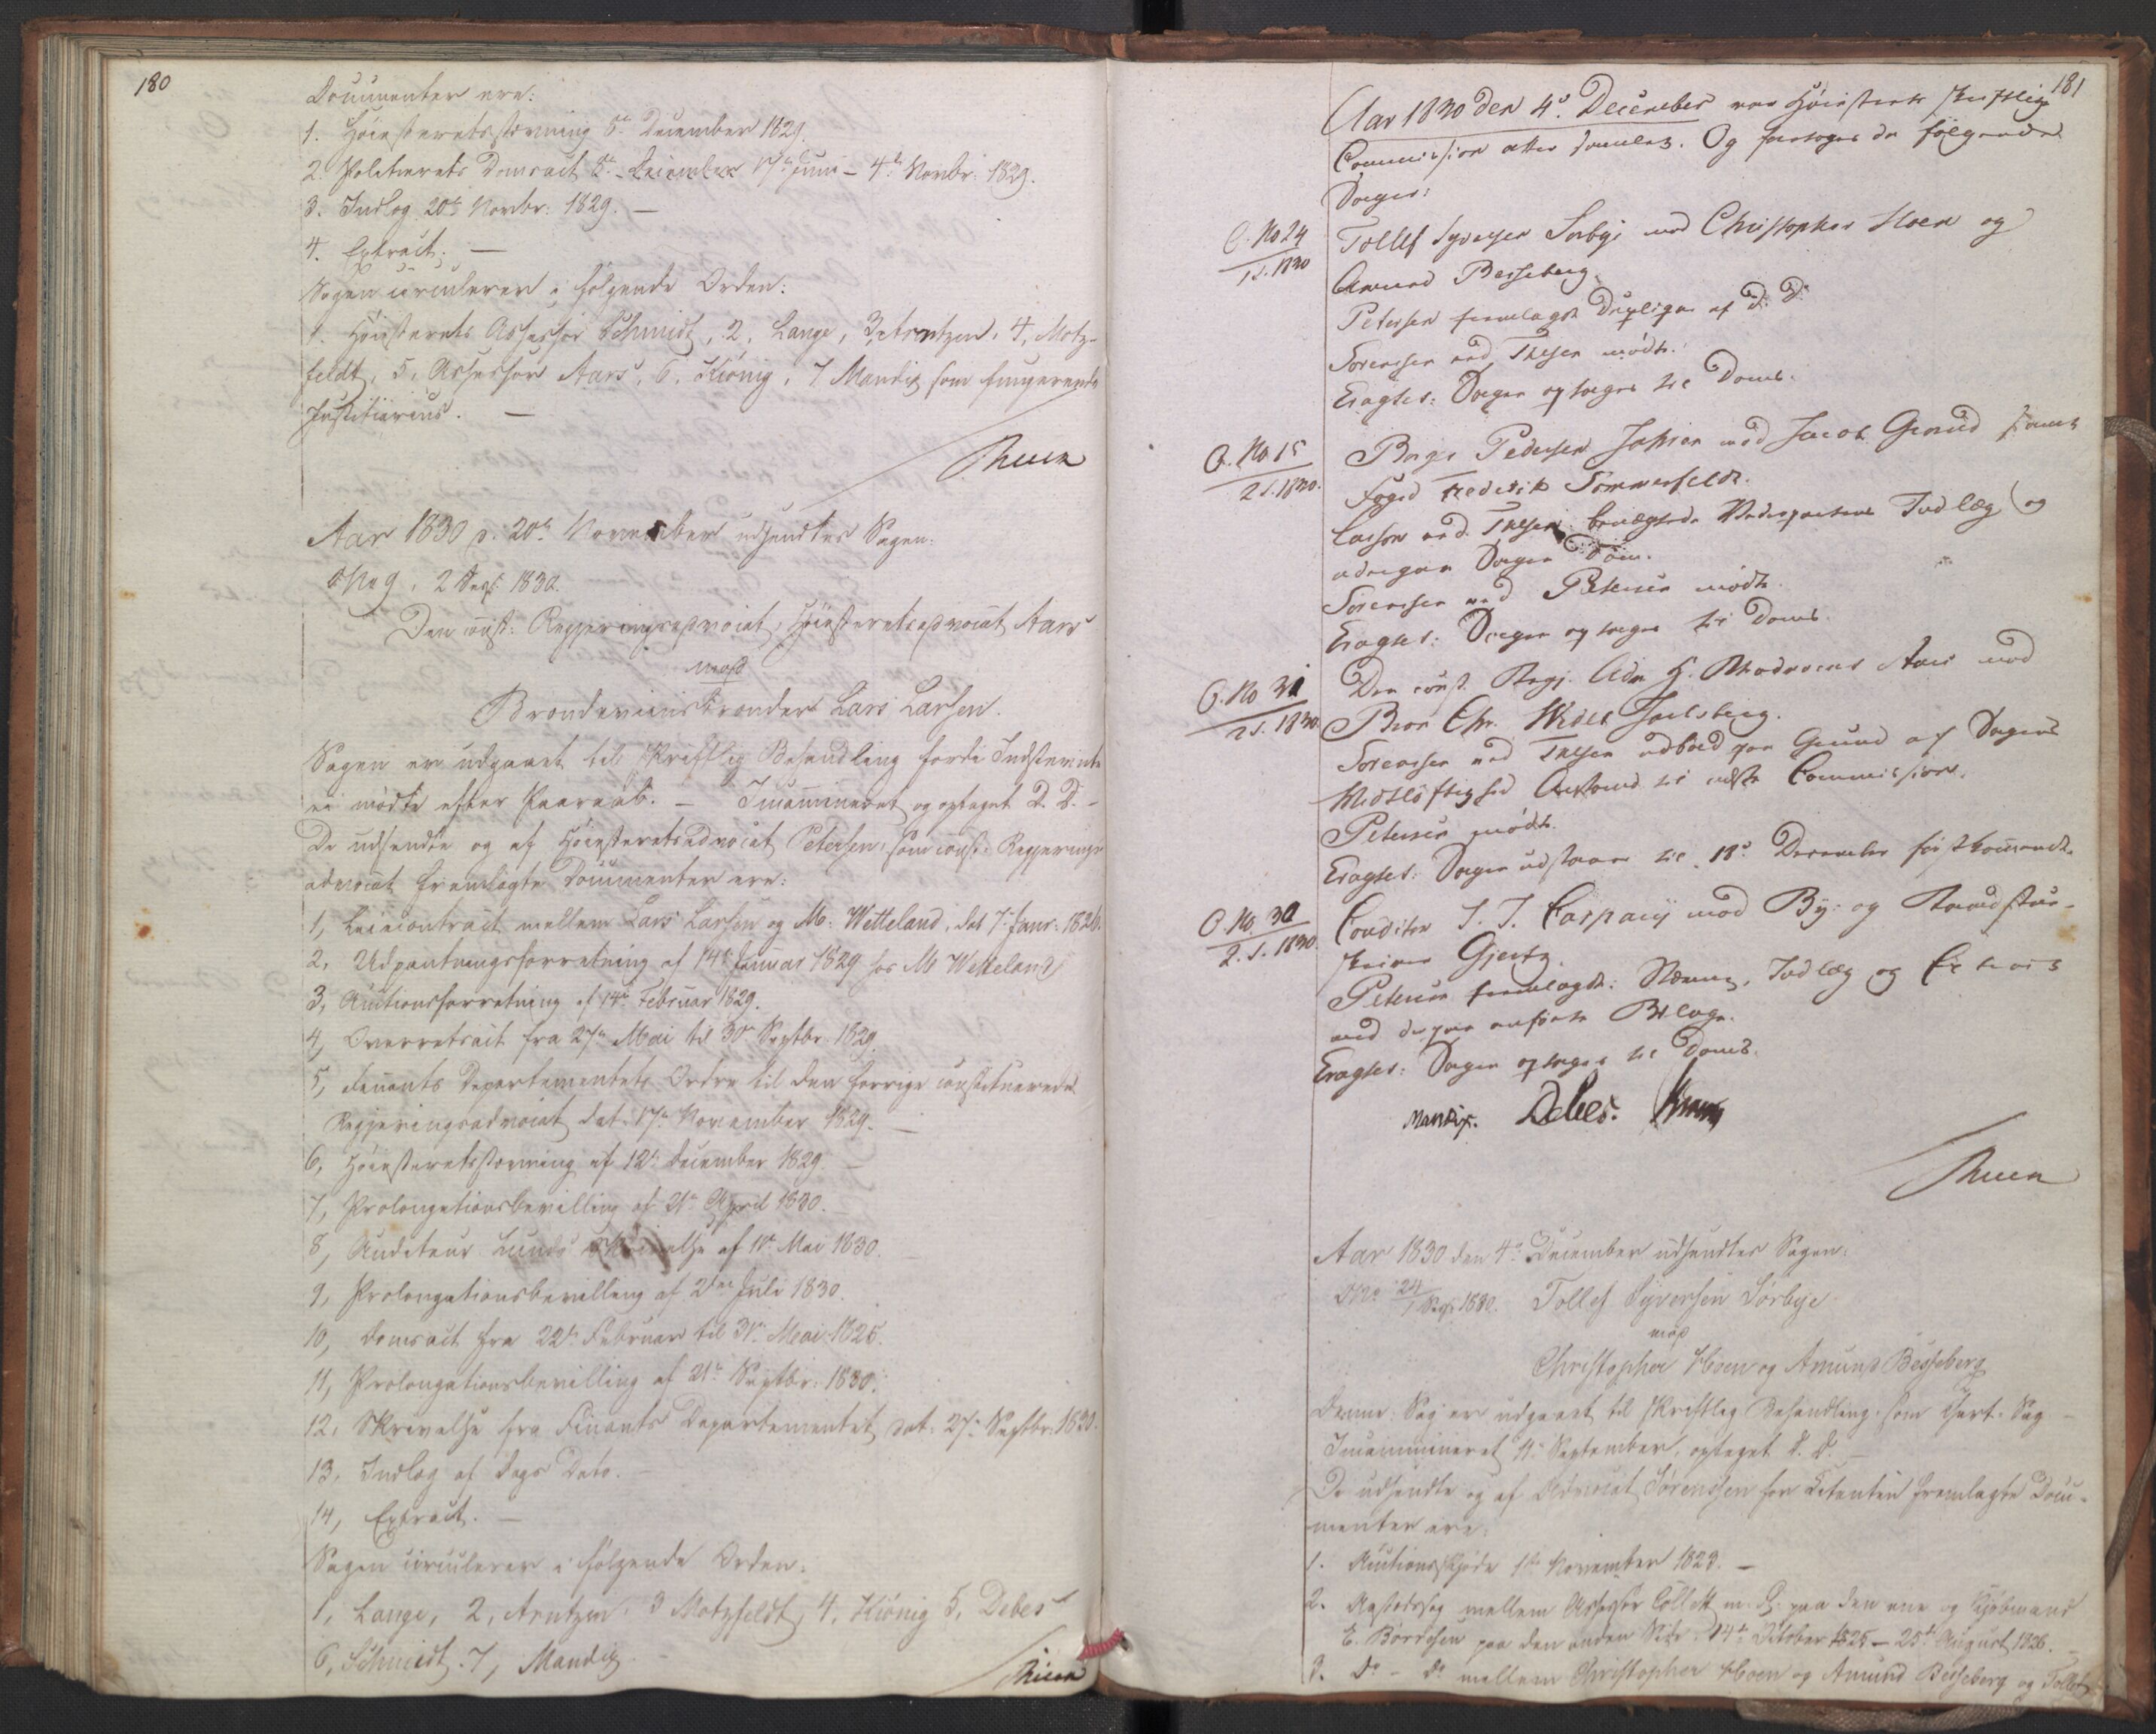 180
Documenter ere:
1. Høiesteretsstævning 8de December 1829.
2. Politierets Domsact 17de Juni – 4de Novbr: 1829.
3. Indlæg 20de Novbr: 1829. —
4. Extract. —
Sagen circulerer i følgende Orden:
1. Høiesterets Assessor Schmidt, 2, Lange, 3, Arntzen, 4, Motz-
feldt, 5, Assessor Aars, 6, Kiønig, 7 Mandix som fungerende
Justitiarius. —
Thuen
Aar 1830 d: 20de November udsendtes Sagen:
No 9, 2 Sess: 1830.
Den const: Regjeringsadvocat, Høiesteretsadvocat Aars
mod
Brændeviinsbrænder Lars Larsen.
Sagen er udgaaet til skriftlig Behandling fordi Indstevnte
ei mødte efter Paaraab. — Incamineret og optaget D. D. –
De udsendte og af Høiesteretsadvocat Petersen, som const: Regjerings-
advocat fremlagte Documenter ere:
1, Leiecontract mellem Lars Larsen og M. Wetteland, dat 7. Janr: 1826.
2, Udpantningsforretning af 14de Januar 1829 hos M Wetteland
3, Auctionsforretning af 14de Februar 1829.
4, Overretsact fra 27de Mai til 30te Septbr: 1829.
5, Finants Departementets Ordre til den forrige constituerede
Regjeringsadvocat dat: 17de November 1829. —
6, Høiesteretsstævning af 12te December 1829. —
7, Prolongationsbevilling af 21de April 1830. —
8, Auditeur Lunds Skrivelse af 10de Mai 1830.
9, Prolongationsbevilling af 2den Juli 1830.
10, Domsact fra 22de Februar til 31te Mai 1825.
11, Prolongationsbevilling af 21de Septbr: 1830.
12, Skrivelse fra Finants Departementet dat: 27de Septbr: 1830.
13, Indlæg af Dags Dato. —
14, Extract. —
Sagen circulerer i følgende Orden:
1, Lange, 2, Arntzen, 3 Motzfeldt, 4, Kiønig 5, Debes
6, Schmidt. 7, Mandix. —
Thuen
181
Aar 1830 den 4de December var Høiesterets skriftlige
Commission atter samlet. Og foretoges da følgende
Sager:
O. No 24
1 S. 1830
Tollef Syversen Sørbye mod Christopher Hoen og
Amund Besseberg.
Petersen fremlagde Dupliqve af D. D.
Sørenssen ved Thesen mødte.
Eragtes: Sagen optages til Doms.
O. No 15
2 S. 1830.
Børge Pedersen mod Jacob samt
Foged Frederik Sommerfeldt.
Lasson ved Thesen Vederpartens Indlæg og
Sagen Dom.
Sørenssen ved Petersen mødte.
Eragtes: Sagen optages til Doms.
O. No 31
2 S. 1830.
Den const. Regj. Adv. H. R. Advocat Aars mod
Baron Chr. Wedel Jarlsberg.
Sørenssen ved Thesen udbad paa Grund af Sagens
Vidtløftighed Anstand til næste Commission.
Petersen mødte.
Eragtes: Sagen udstaar til 18de December førstkommende.
O. No. 30
2. S. 1830.
Conditor J. J. Caspary mod By- og Raadstue-
skriver Gjertz.
Petersen fremlagde: Stævning, Indlæg og Extract
med derpaa anførte Bilage.
Eragtes: Sagen optages til Doms.
Mandix. Debes.
Thuen
Aar 1830 den 4de December udsendtes Sagen:
No 24/1 Sess: 1830. Tollef Syversen Sørbye
mod
Christopher Hoen og Amund Besseberg
Denne Sag er udgaaet til skriftlig Behandling som Sag –
Incamineret 11. September, optaget D. D. —
De udsendte og af Advocat Sørenssen for Citanten fremlagte Docu-
menter ere:
1. Auctionsskjøde 1ste November 1823. —
2. Aastedssag mellem Assessor Collett m. fl. paa den ene og Kjøbmand
E. Børresen paa den anden Side. 14de October 1825 – 25de August 1826. —
3. Do – do mellem Christopher Hoen og Amund Besseberg og Tollef